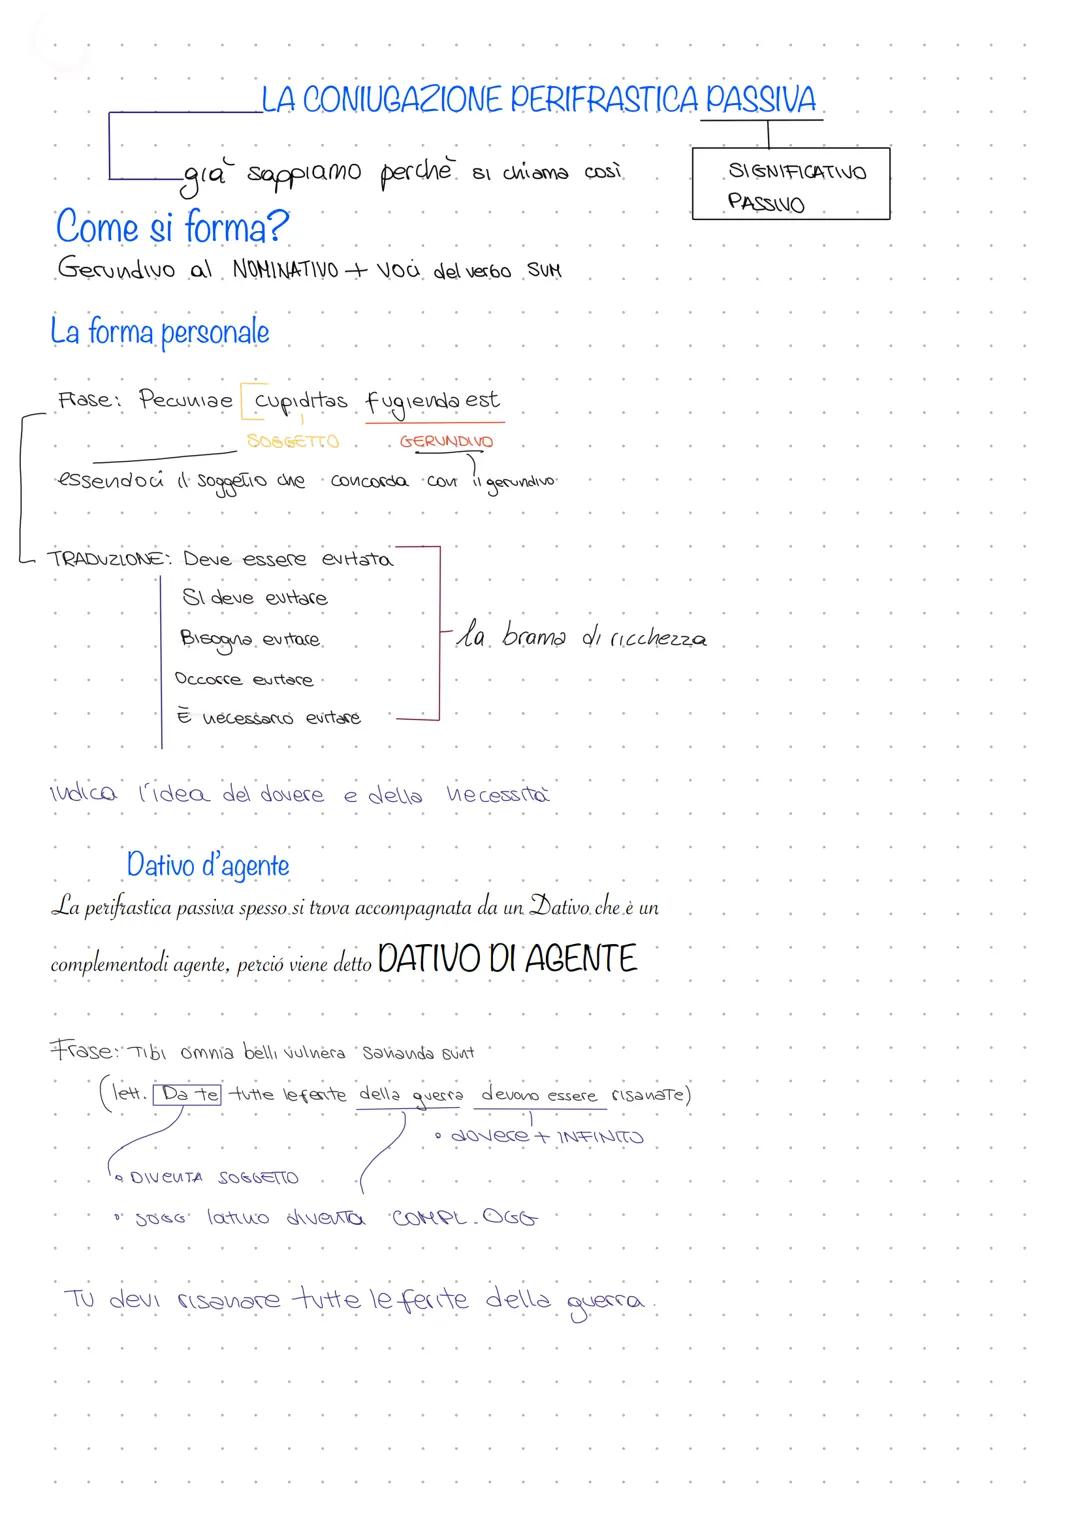 LA CONIUGAZIONE PERIFRASTICA PASSIVA
già sappiamo perchè si chiama così
SIGNIFICATIVO
PASSIVO
Come si forma?
Gerundivo al NOMINATIVO + voci del verbo SUM
La forma personale
Frase: Pecuniae cupiditas fugienda est
SOGGETTO
GERUNDIVO
essendoci il soggetto che concorda con il gerundivo
TRADUZIONE: Deve essere evitata
Si deve evitare
Bisogna evitare
Occorre evitare
È necessario evitare
la brama di ricchezza
indica l'idea del dovere e della necessità
Dativo d'agente
La perifrastica passiva spesso si trova accompagnata da un Dativo che è un
complementodi agente, perció viene detto DATIVO DI AGENTE
Frase: Tibi omnia belli vulnera sananda sunt
(lett. Da te tutte le ferite della guerra devono essere risanate)
• dovere + INFINITO
• DIVENTA SOGGETTO
• SOGG latino diventa COMPL. OGG
Tu devi risanare tutte le ferite della guerra.